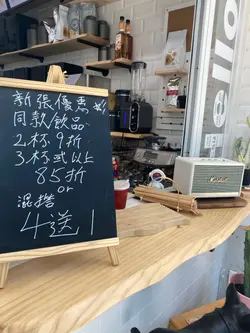 新張優惠
同款飲品
2杯9折
3杯或以上
85折
or
混搭
4送1
Marshall
ello